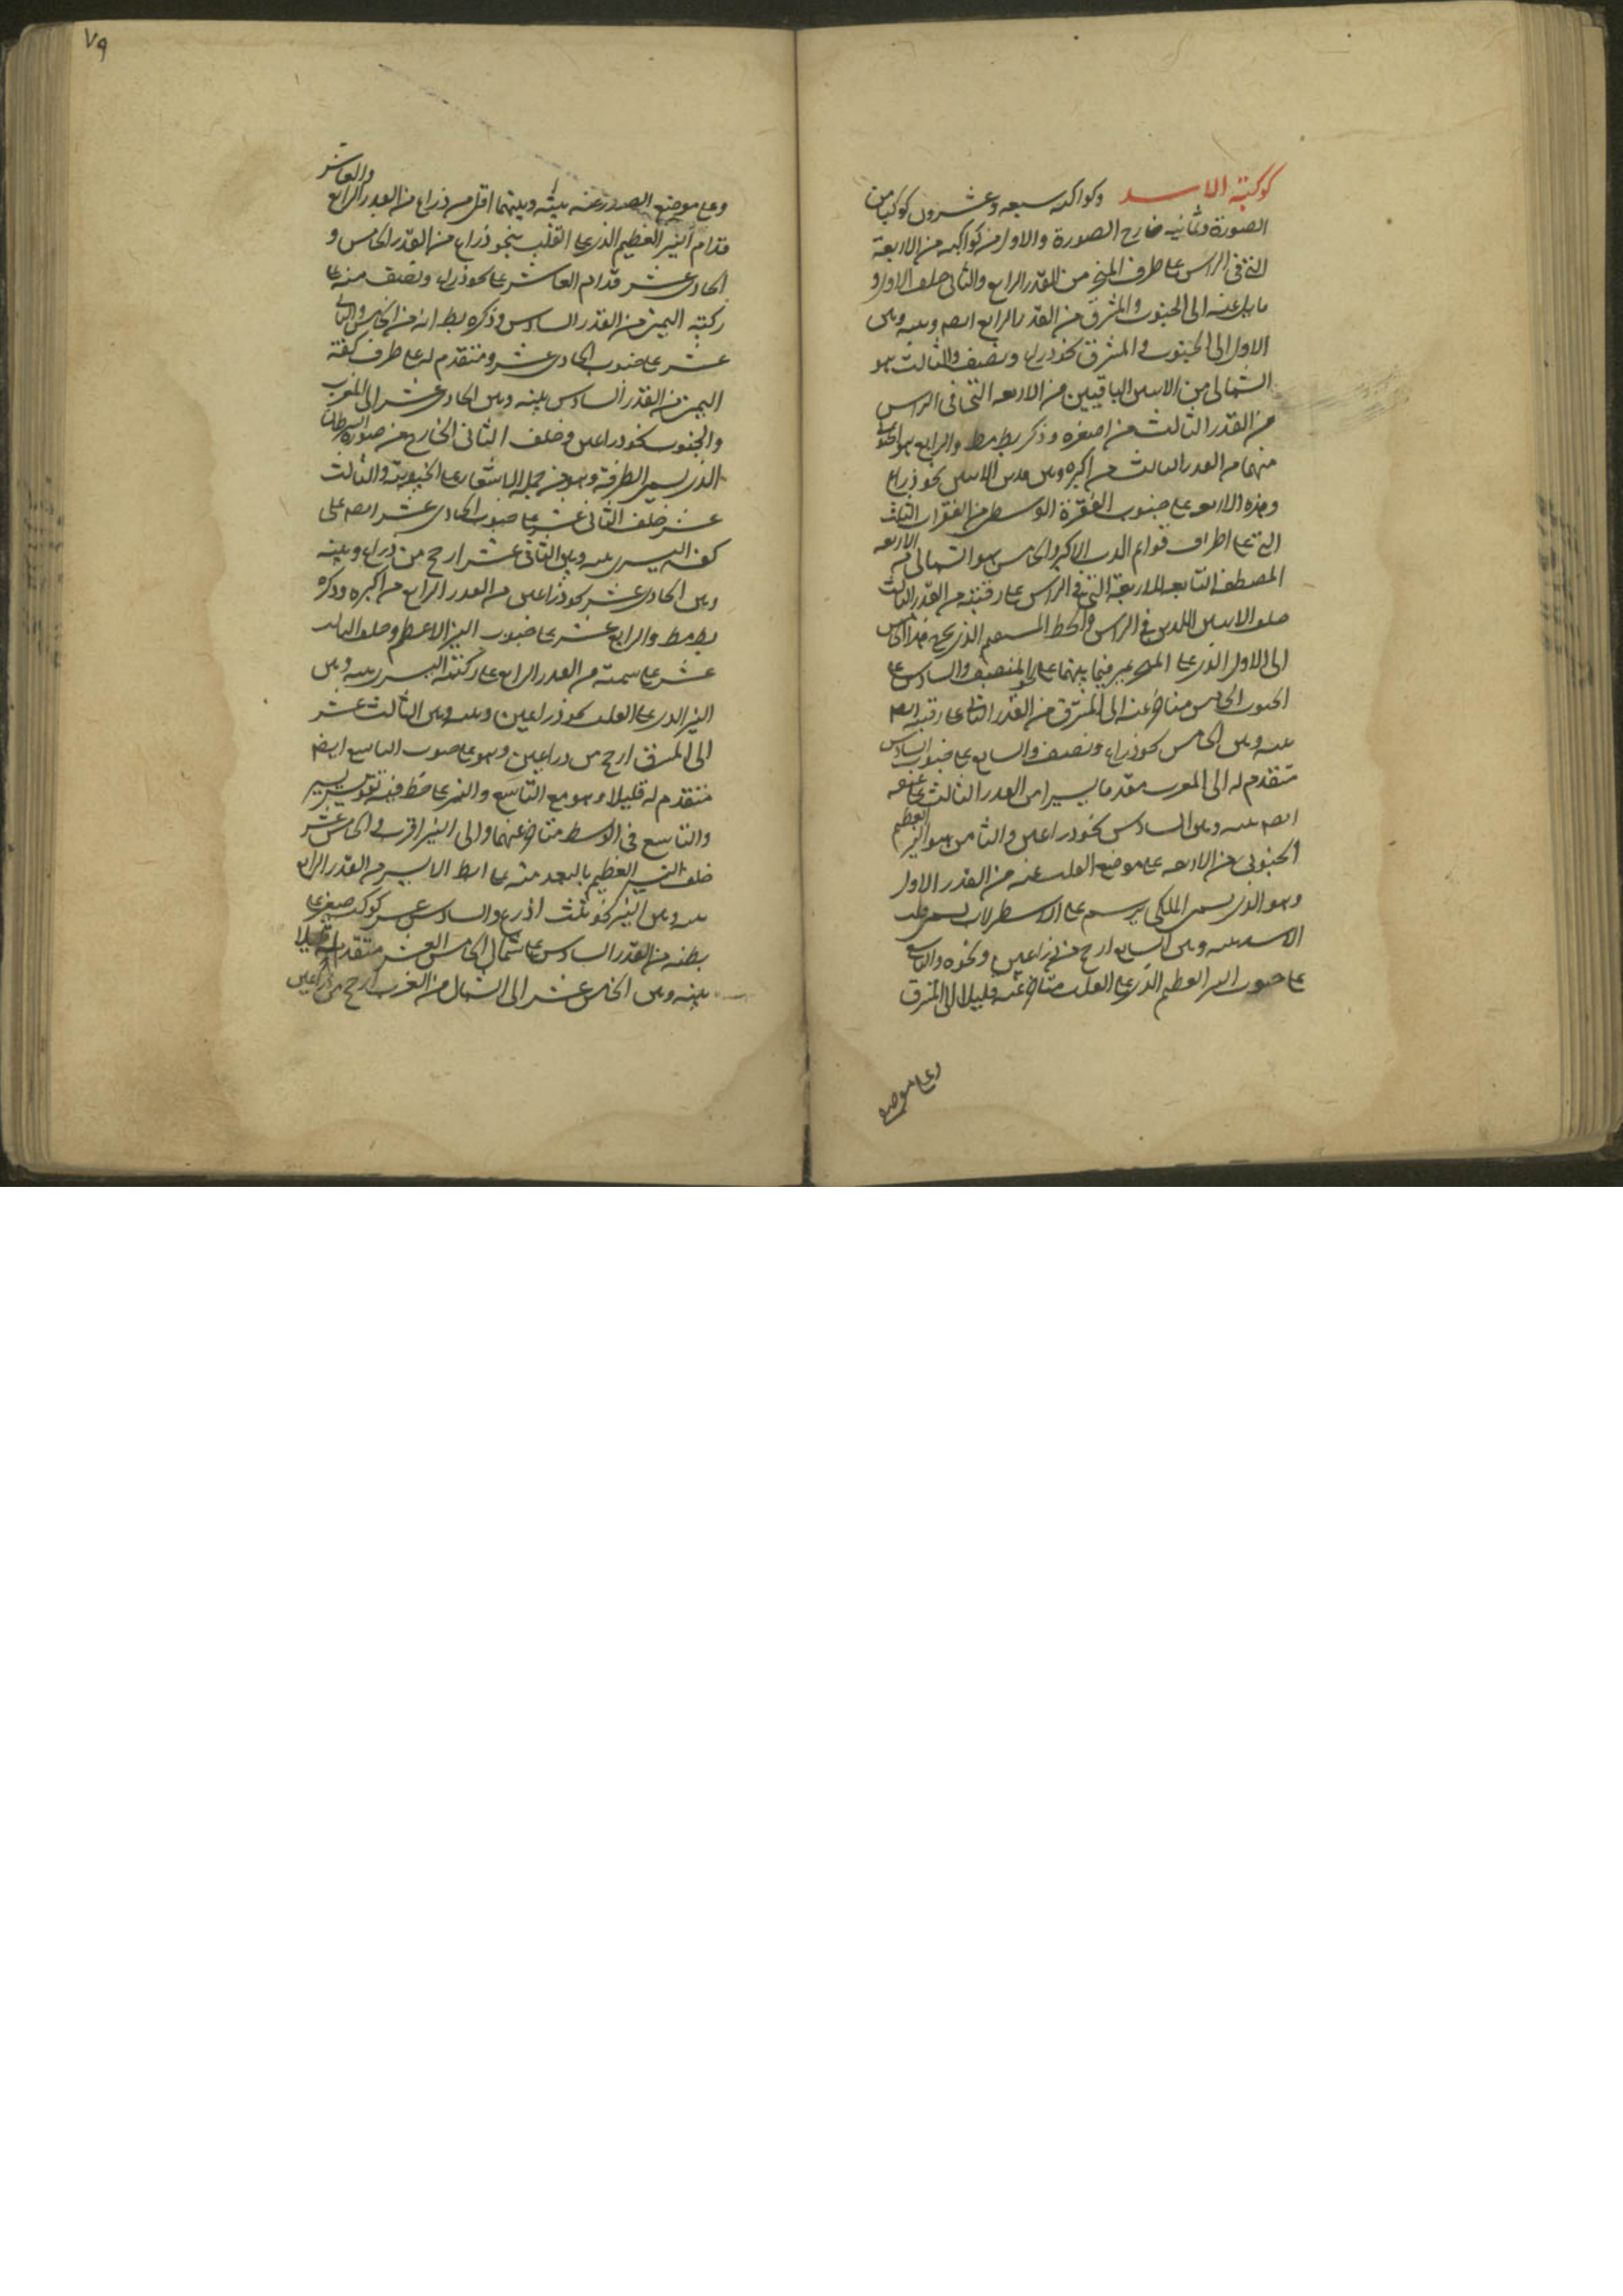 كوكبة الاسد وكواكبه سبعه وعشرون كوكبا من
الصورة وثمانيه خارج الصورة والاول من كواكبه من الاربعة
التى فى الراس على طرف المنخر من القدر الرابع والثانى خلف الاول و
مايل عنه الى الجنوب والمشرق من القدر الرابع ايضا وبينه وبين
الاول الى الجنوب والمشرق نحو ذراع ونصف والثالث هو
الشمالى من الاثنين الباقيين من الاربعه التى فى الراس
من القدر الثالث من اصغره وذكر بطلميوس والرابع هو الجنوبى
منهما من القدر الثالث من اكبره وبين هذين الاثنين نحو ذراع
وهذه الاربعه على جنوب الفقرة الوسطى من الفقرات الثلث
التى على اطراف قوائم الدب الاكبر والخامس هو الشمالى من الاربعه
المصطفة التابعه للاربعة التى فى الراس على رقبته من القدر الثالث
خلف الاثنين اللذين فى الراس والخط المستقيم الذى يخرج من الخامس
الى الاول الذى على المنخر يمر فيما بينهما على المنتصف والسادس على
جنوب الخامس متاخر عنه الى المشرق من القدر الثانى على رقبته ايضا
بينه وبين الخامس نحو ذراع ونصف والسابع على جنوب السادس
متقدم له الى المغرب تقدما يسيرا من القدر الثالث على عنقه
ايضا بينه وبين السادس نحو ذراعين والثامن هو النير العظيم
الجنوبى من الاربعه على موضع القلب منه من القدر الاول
وهو الذى يسمى الملكى يرسم على الاسطرلاب يسمى قلب
الاسد بينه وبين السابع ارجح من ذراعين ونحوه والتاسع
على جنوب النير العظيم الذى على القلب متاخر عنه قليلا الى المشرق
وعلى موضع
٧٩
وعلى موضع الصدر منه بينه وبينهما اقل من ذراع من القدر الرابع والعاشر
قدام النير العظيم الذى على القلب بنحو ذراع من القدر الخامس و
الحادى عشر قدام العاشر على نحو ذراع ونصف منه على
ركبته اليمنى من القدر السادس وذكره بط انه من الخامس والثانى
عشر على جنوب الحادى عشر ومتقدم له على طرف كفه
اليمنى من القدر السادس بينه وبين الحادى عشر الى المغرب
والجنوب نحو ذراعين وخلف الثانى الخارج من صورة السرطان
الذى يسمى الطرفة وهو من جملة الاشفار على الجنوبية والثالث
عشر خلف الثانى عشر على جنوب الحادى عشر ايضا على
كفه اليسرى بينه وبين الثانى عشر ارجح من ذراع وبينه
وبين الحادى عشر نحو ذراعين من القدر الرابع من اكبره وذكره
بطلميوس والرابع عشر على جنوب النير الاعظم وخلف الثالث
عشر على سمته من القدر الرابع على ركبته اليسرى بينه وبين
النير الذى على القلب نحو ذراعين وبينه وبين الثالث عشر
الى المشرق ارجح من ذراعين وهو على جنوب التاسع ايضا
متقدم له قليلا وهو مع التاسع والنير على خط فيه تقويس يسير
والتاسع فى الوسط متاخر عنهما والى النير اقرب والخامس عشر
خلف النير العظيم بالبعد منه على ابط الايسر من القدر الرابع
بينه وبين النير نحو ثلث اذرع والسادس عشر كوكب صغير على
بطنه من القدر السادس على شمال الخامس العشر متقدم له قليلا
بينه وبين الخامس عشر الى الشمال من الغرب ارجح من ذراعين